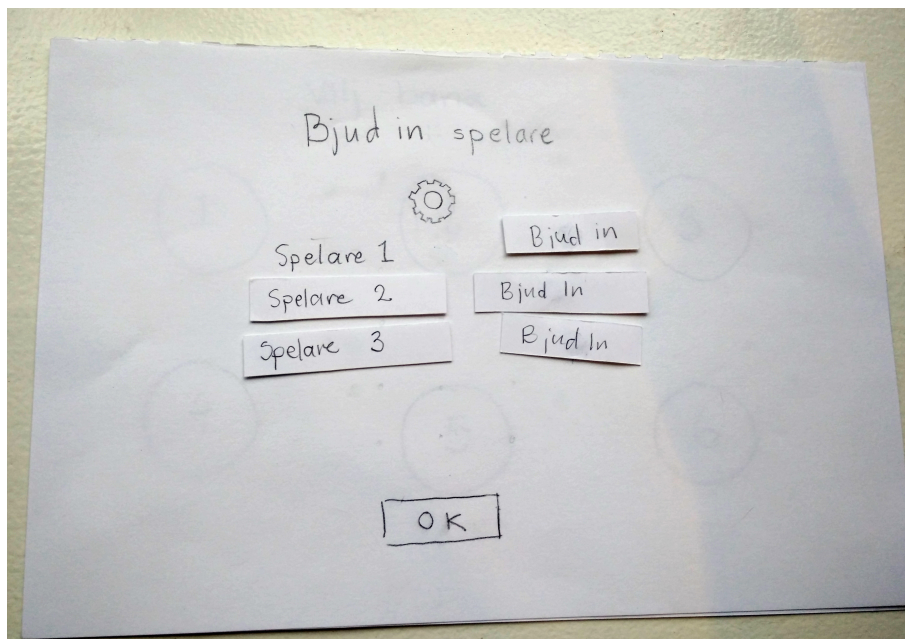 Bjud in spelare
Spelare 1 Bjud in
Spelare 2 Bjud In
Spelare 3 Bjud In
OK